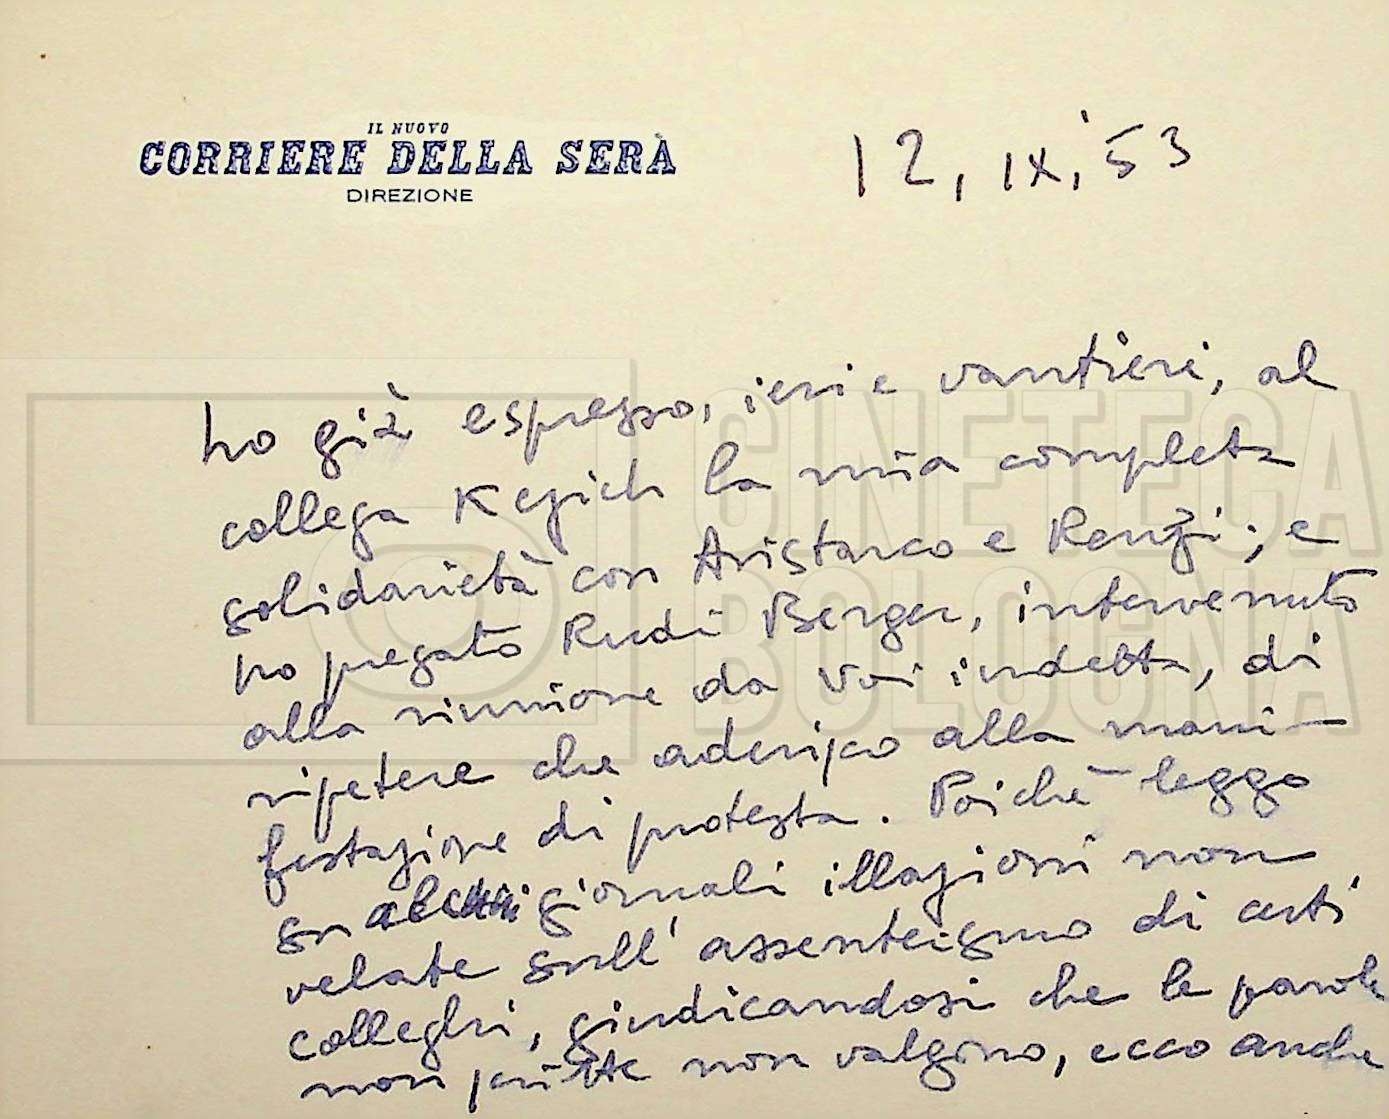 IL NUOVO
CORRIERE DELLA SERA
DIREZIONE
12, IX, '53
ho già espresso, ieri e vantieri, al
collega Kezich la mia completa
solidarietà con Aristarco e Renzi; e
ho pregato Rudi Berger, intervenuto
alla riunione da Voi indetta, di
ripetere che aderisco alla mani-
festazione di protesta. Poichè leggo
su alcuni giornali illazioni non
velate sull'assenteismo di certi
colleghi, giudicandosi che le parole
non scritte non valgono, ecco anche
CINETECA
BOLOGNA